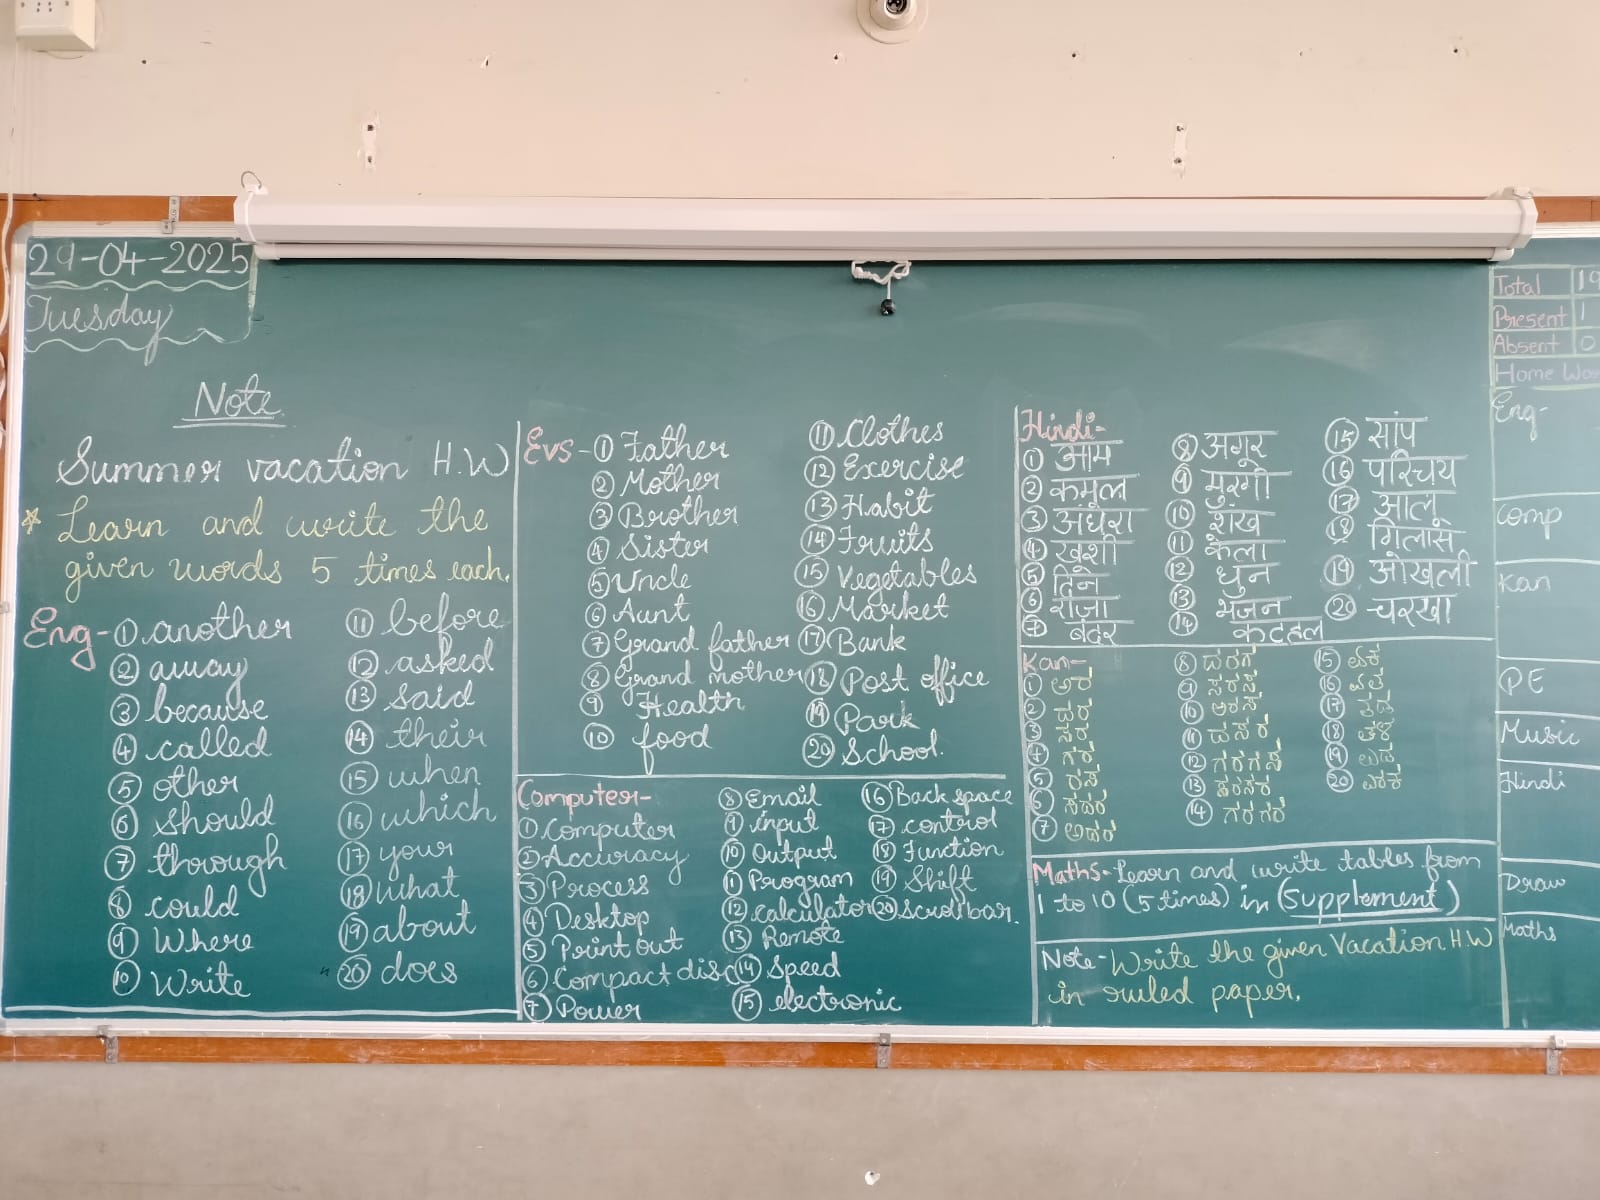 29-04-2025
Tuesday
Note
Summer vacation H.W
* Learn and write the
given words 5 times each.
Eng-
① another
② away
③ because
④ called
⑤ other
⑥ should
⑦ through
⑧ could
⑨ Where
⑩ Write
⑪ before
⑫ asked
⑬ said
⑭ their
⑮ when
⑯ which
⑰ your
⑱ what
⑲ about
⑳ does
Evs-
① Father
② Mother
③ Brother
④ Sister
⑤ Uncle
⑥ Aunt
⑦ Grand father
⑧ Grand mother
⑨ Health
⑩ food
⑪ Clothes
⑫ Exercise
⑬ Habit
⑭ Fruits
⑮ Vegetables
⑯ Market
⑰ Bank
⑱ Post office
⑲ Park
⑳ School.
Computer-
① Computer
② Accuracy
③ Process
④ Desktop
⑤ Print out
⑥ Compact disc
⑦ Power
⑧ Email
⑨ input
⑩ Output
⑪ Program
⑫ calculator
⑬ Remote
⑭ Speed
⑮ electronic
⑯ Back space
⑰ control
⑱ Function
⑲ Shift
⑳ Scrollbar.
Hindi-
① आम
② कमल
③ अंधेरा
④ खुशी
⑤ दिन
⑥ राजा
⑦ बंदर
⑧ अंगूर
⑨ मुरगी
⑩ शंख
⑪ केला
⑫ धुन
⑬ भजन
⑭ कटहल
⑮ सांप
⑯ परिचय
⑰ आलू
⑱ गिलास
⑲ ओखली
⑳ चरखा
Kan-
① ಅರ
②
③
④
⑤
⑥
⑦
⑧
⑨
⑩
⑪
⑫
⑬
⑭ ಗರಗರ
⑮
⑯
⑰
⑱
⑲
⑳
Maths- Learn and write tables from
1 to 10 (5 times) in (Supplement)
Note- Write the given Vacation H.W
in ruled paper.
Total
Present
Absent 0
Home
Eng-
Comp
Kan
PE
Music
Hindi
Draw
Maths